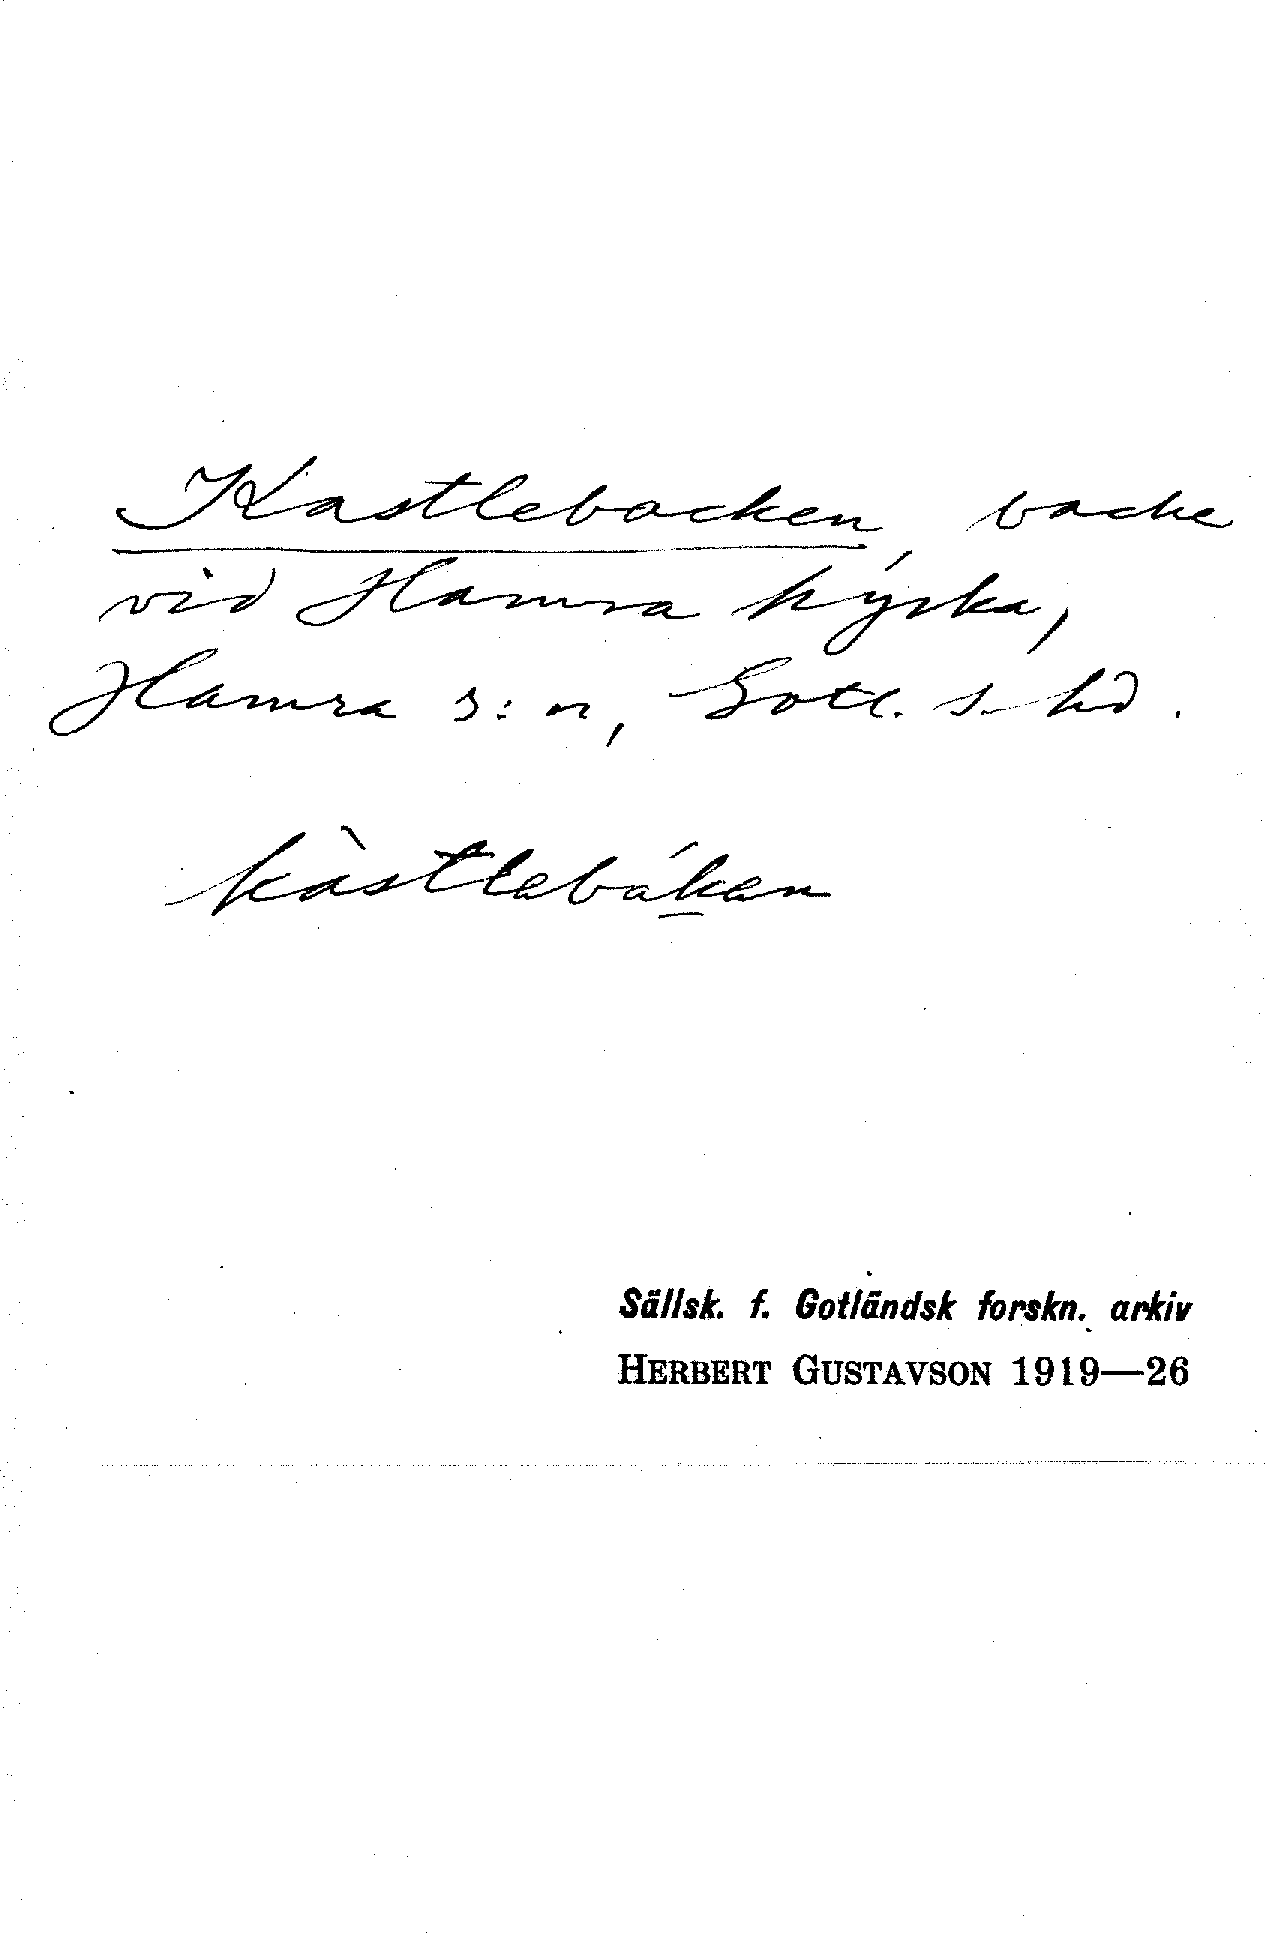 Kastlebacken, backe
vid Hamra kyrka,
Hamra s:n, Gotl. s. hd.
kàstlebákan
Sällsk. f. Gotländsk forskn. arkiv
HERBERT GUSTAVSON 1919—26